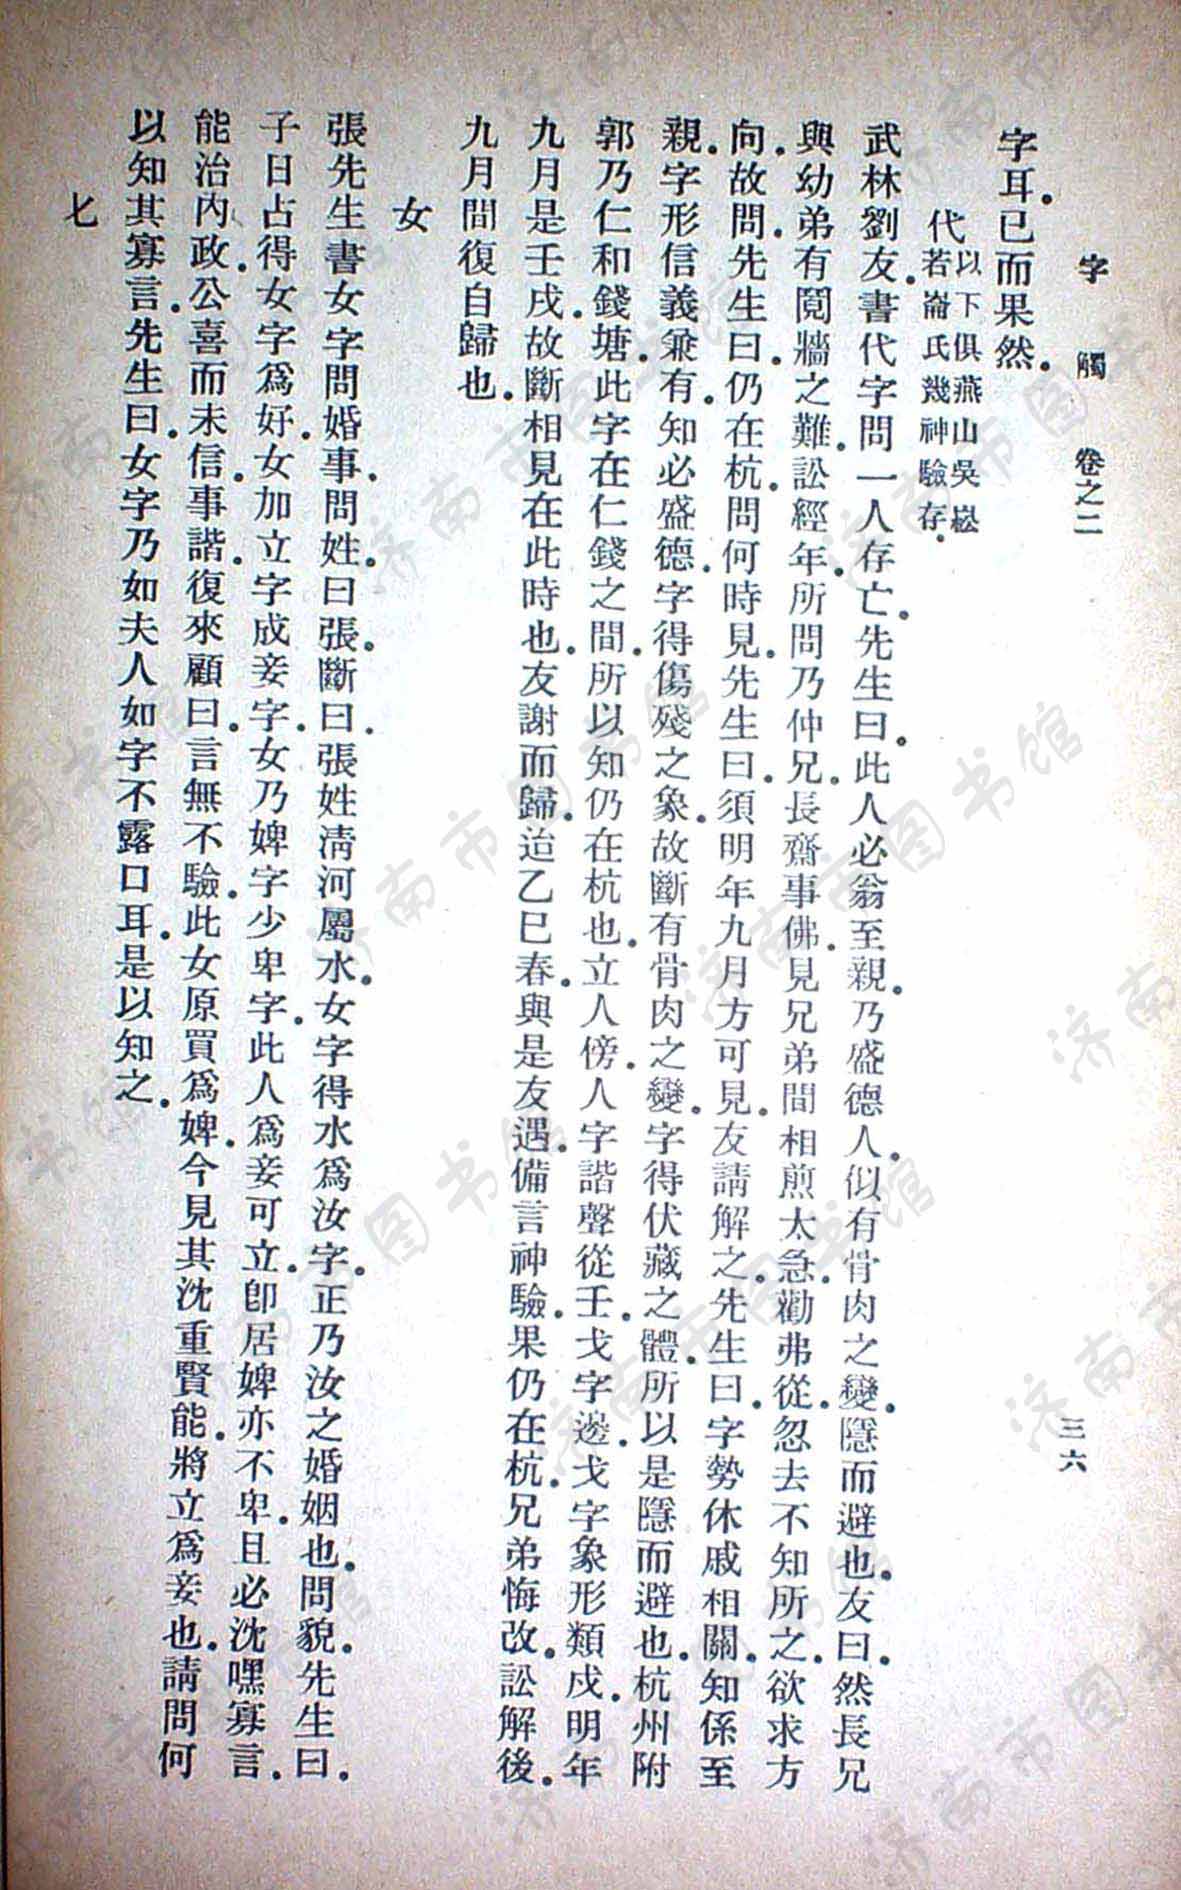 字觸　卷之二　三六
字耳。已而果然。
代以下俱燕山吳崧
若崙氏幾神驗存。
武林劉友。書代字問一人存亡。先生曰。此人必翁至親。乃盛德人。似有骨肉之變。隱而避也。友曰。然長兄
與幼弟有鬩牆之難。訟經年。所問乃仲兄。長齋事佛。見兄弟間相煎太急。勸弗從。忽去不知所之。欲求方
向。故問。先生曰。仍在杭。問何時見。先生曰。須明年九月方可見。友請解之。先生曰。字勢休戚相關。知係至
親。字形信義兼有。知必盛德。字得傷殘之象。故斷有骨肉之變。字得伏藏之體。所以是隱而避也。杭州附
郭乃仁和錢塘。此字在仁錢之間。所以知仍在杭也。立人傍。人字諧聲從壬。戈字邊。戈字象形類戍。明年
九月是壬戌。故斷相見在此時也。友謝而歸。迨乙巳春。與是友遇。備言神驗。果仍在杭。兄弟悔改。訟解後。
九月間復自歸也。
女
張先生書女字問婚事。問姓。曰張。斷曰。張姓清河屬水。女字得水爲汝字。正乃汝之婚姻也。問貌。先生曰。
子日占得女字爲好。女加立字成妾字。女乃婢字少卑字。此人爲妾可立。卽居婢亦不卑。且必沈嘿寡言。
能治內政。公喜而未信。事諧。復來顧曰。言無不驗。此女原買爲婢。今見其沈重賢能。將立爲妾也。請問何
以知其寡言。先生曰。女字乃如夫人如字不露口耳。是以知之。
匕